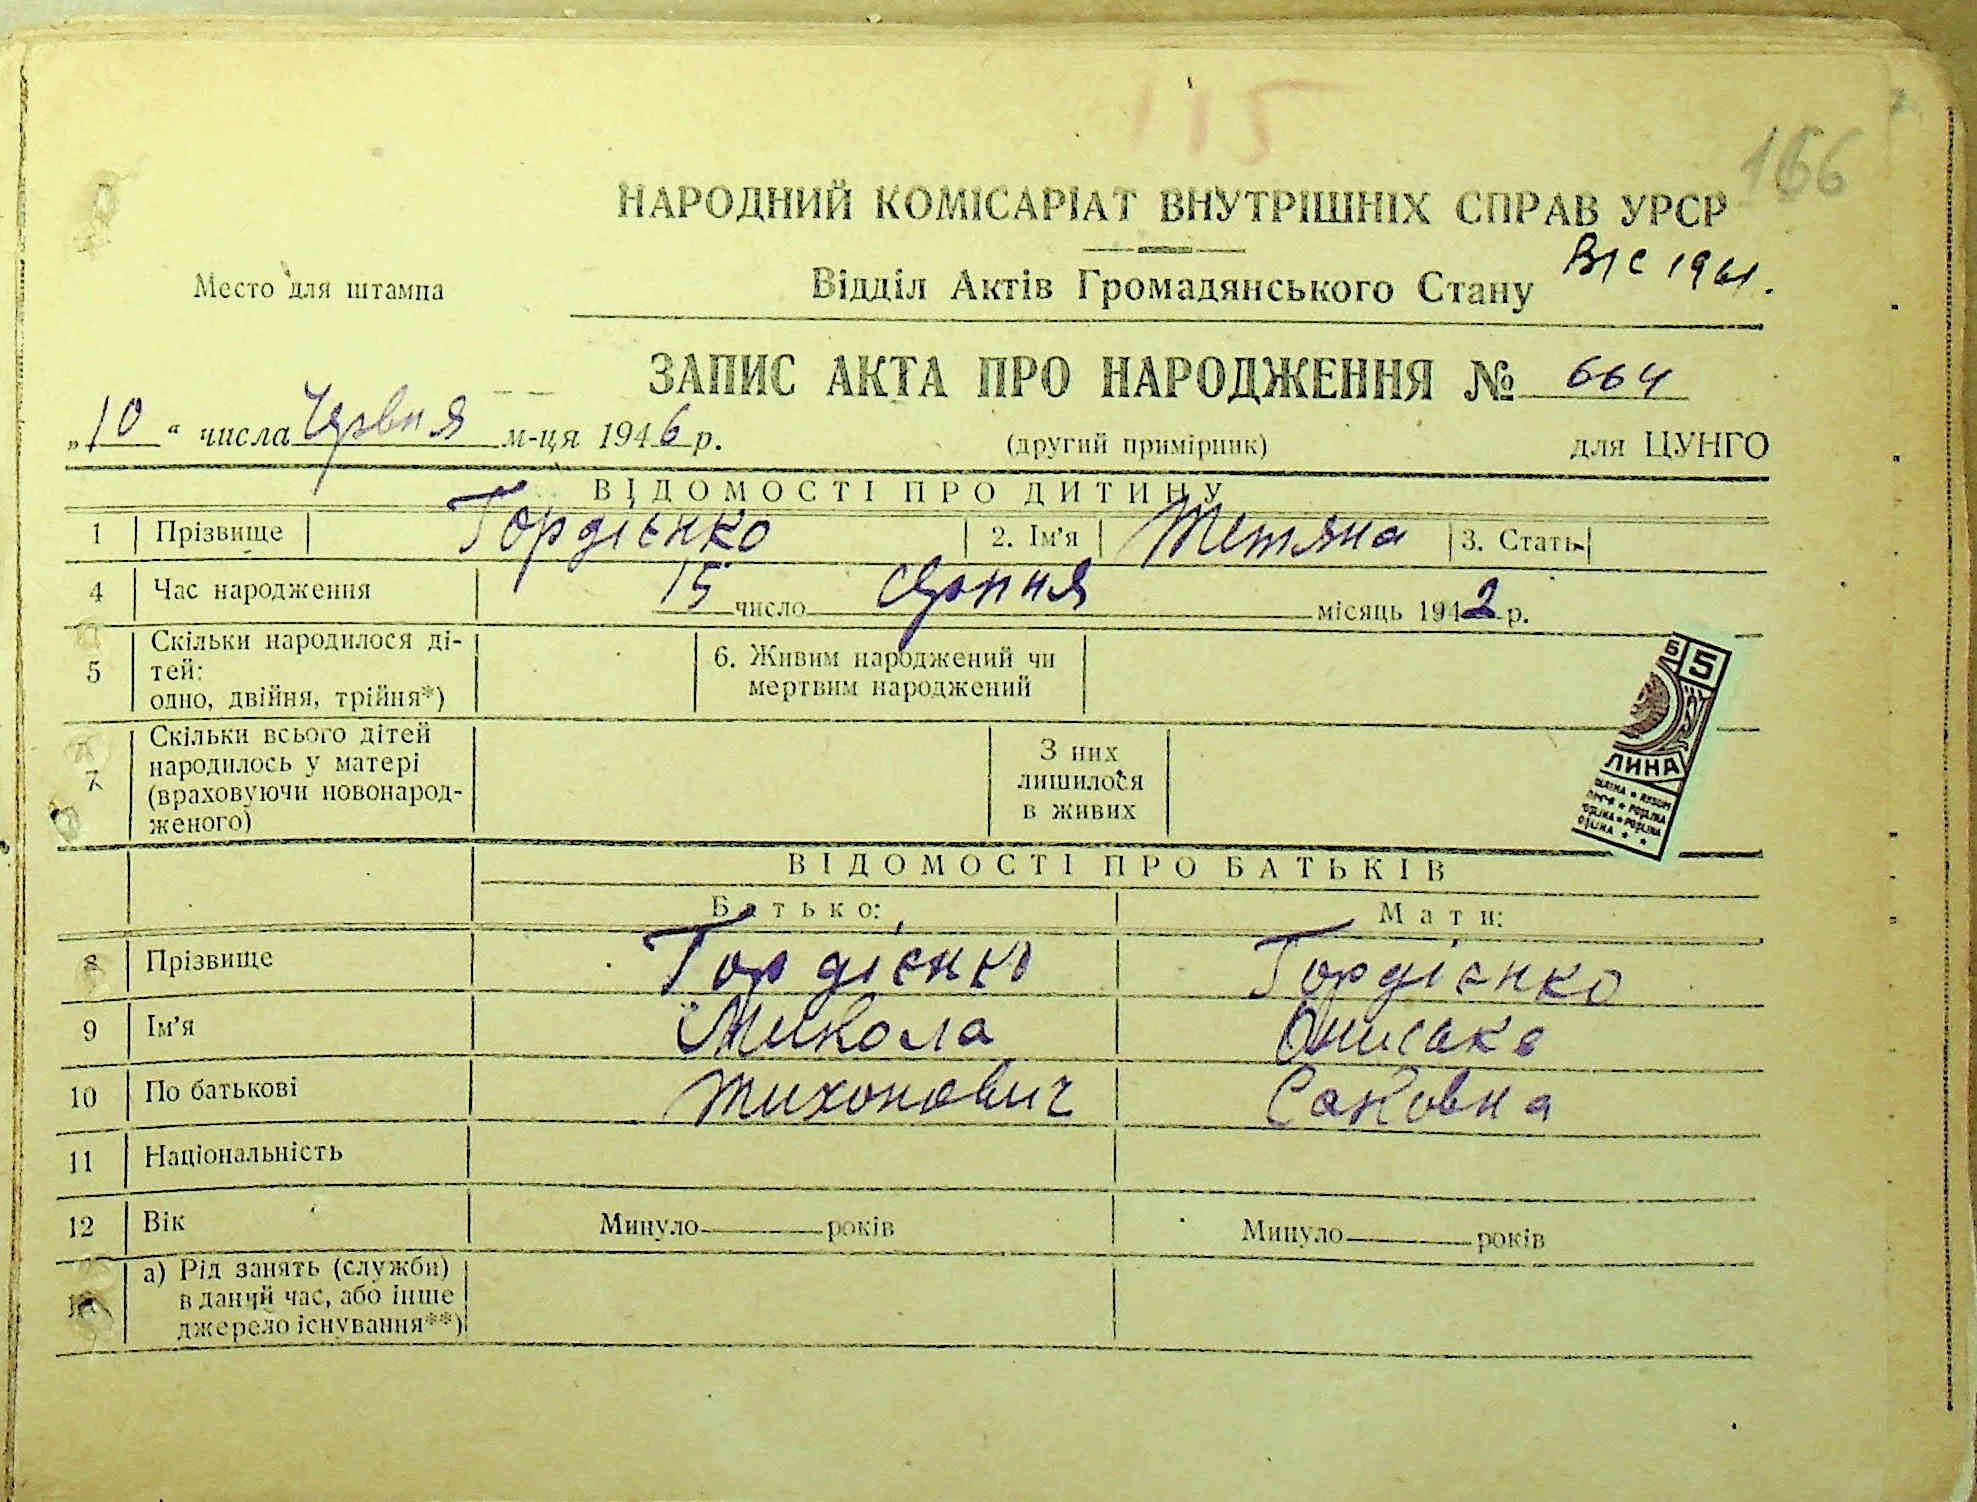 115
166
НАРОДНИЙ КОМІСАРІАТ ВНУТРІШНІХ СПРАВ УРСР
Место для штампа
Відділ Актів Громадянського Стану
1961.
ЗАПИС АКТА ПРО НАРОДЖЕННЯ № 664
„10“ числа Червня м-ця 1946 р.
(другий примірник)
для ЦУНГО
ВІДОМОСТІ ПРО ДИТИНУ
1 Прізвище Гордієнко 2. Ім'я Тетяна 3. Стать
4 Час народження 15 число серпня місяць 1942 р.
5 Скільки народилося ді-
тей:
одно, двійня, трійня*)
6. Живим народжений чи
мертвим народжений
7 Скільки всього дітей
народилось у матері
(враховуючи новонарод-
женого)
З них
лишилося
в живих
5
ЛИНА
ВІДОМОСТІ ПРО БАТЬКІВ
Батько: Мати:
8 Прізвище Гордієнко Гордієнко
9 Ім'я Микола Ониська
10 По батькові Тихонович Саковна
11 Національність
12 Вік Минуло років Минуло років
а) Рід занять (служби)
в даний час, або інше
джерело існування**)